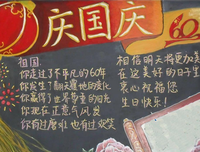 庆国庆
60
祖国
你走过了不平凡的60年
你发生了翻天覆地的变化
你赢得了世界尊重的目光
你现在正意气风发
你有过磨难也有过欢笑
相信明天将更加美
在这美好的日子里
衷心祝福您
生日快乐!